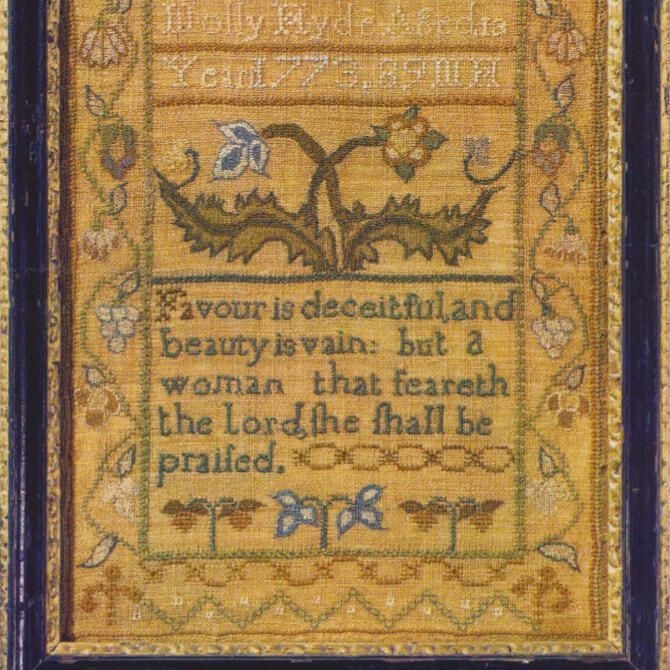 Molly Hyde Aged 13
Year 1773. 89. M H
Favour is deceitful, and
beauty is vain: but a
woman that feareth
the Lord, ſhe ſhall be
praiſed.